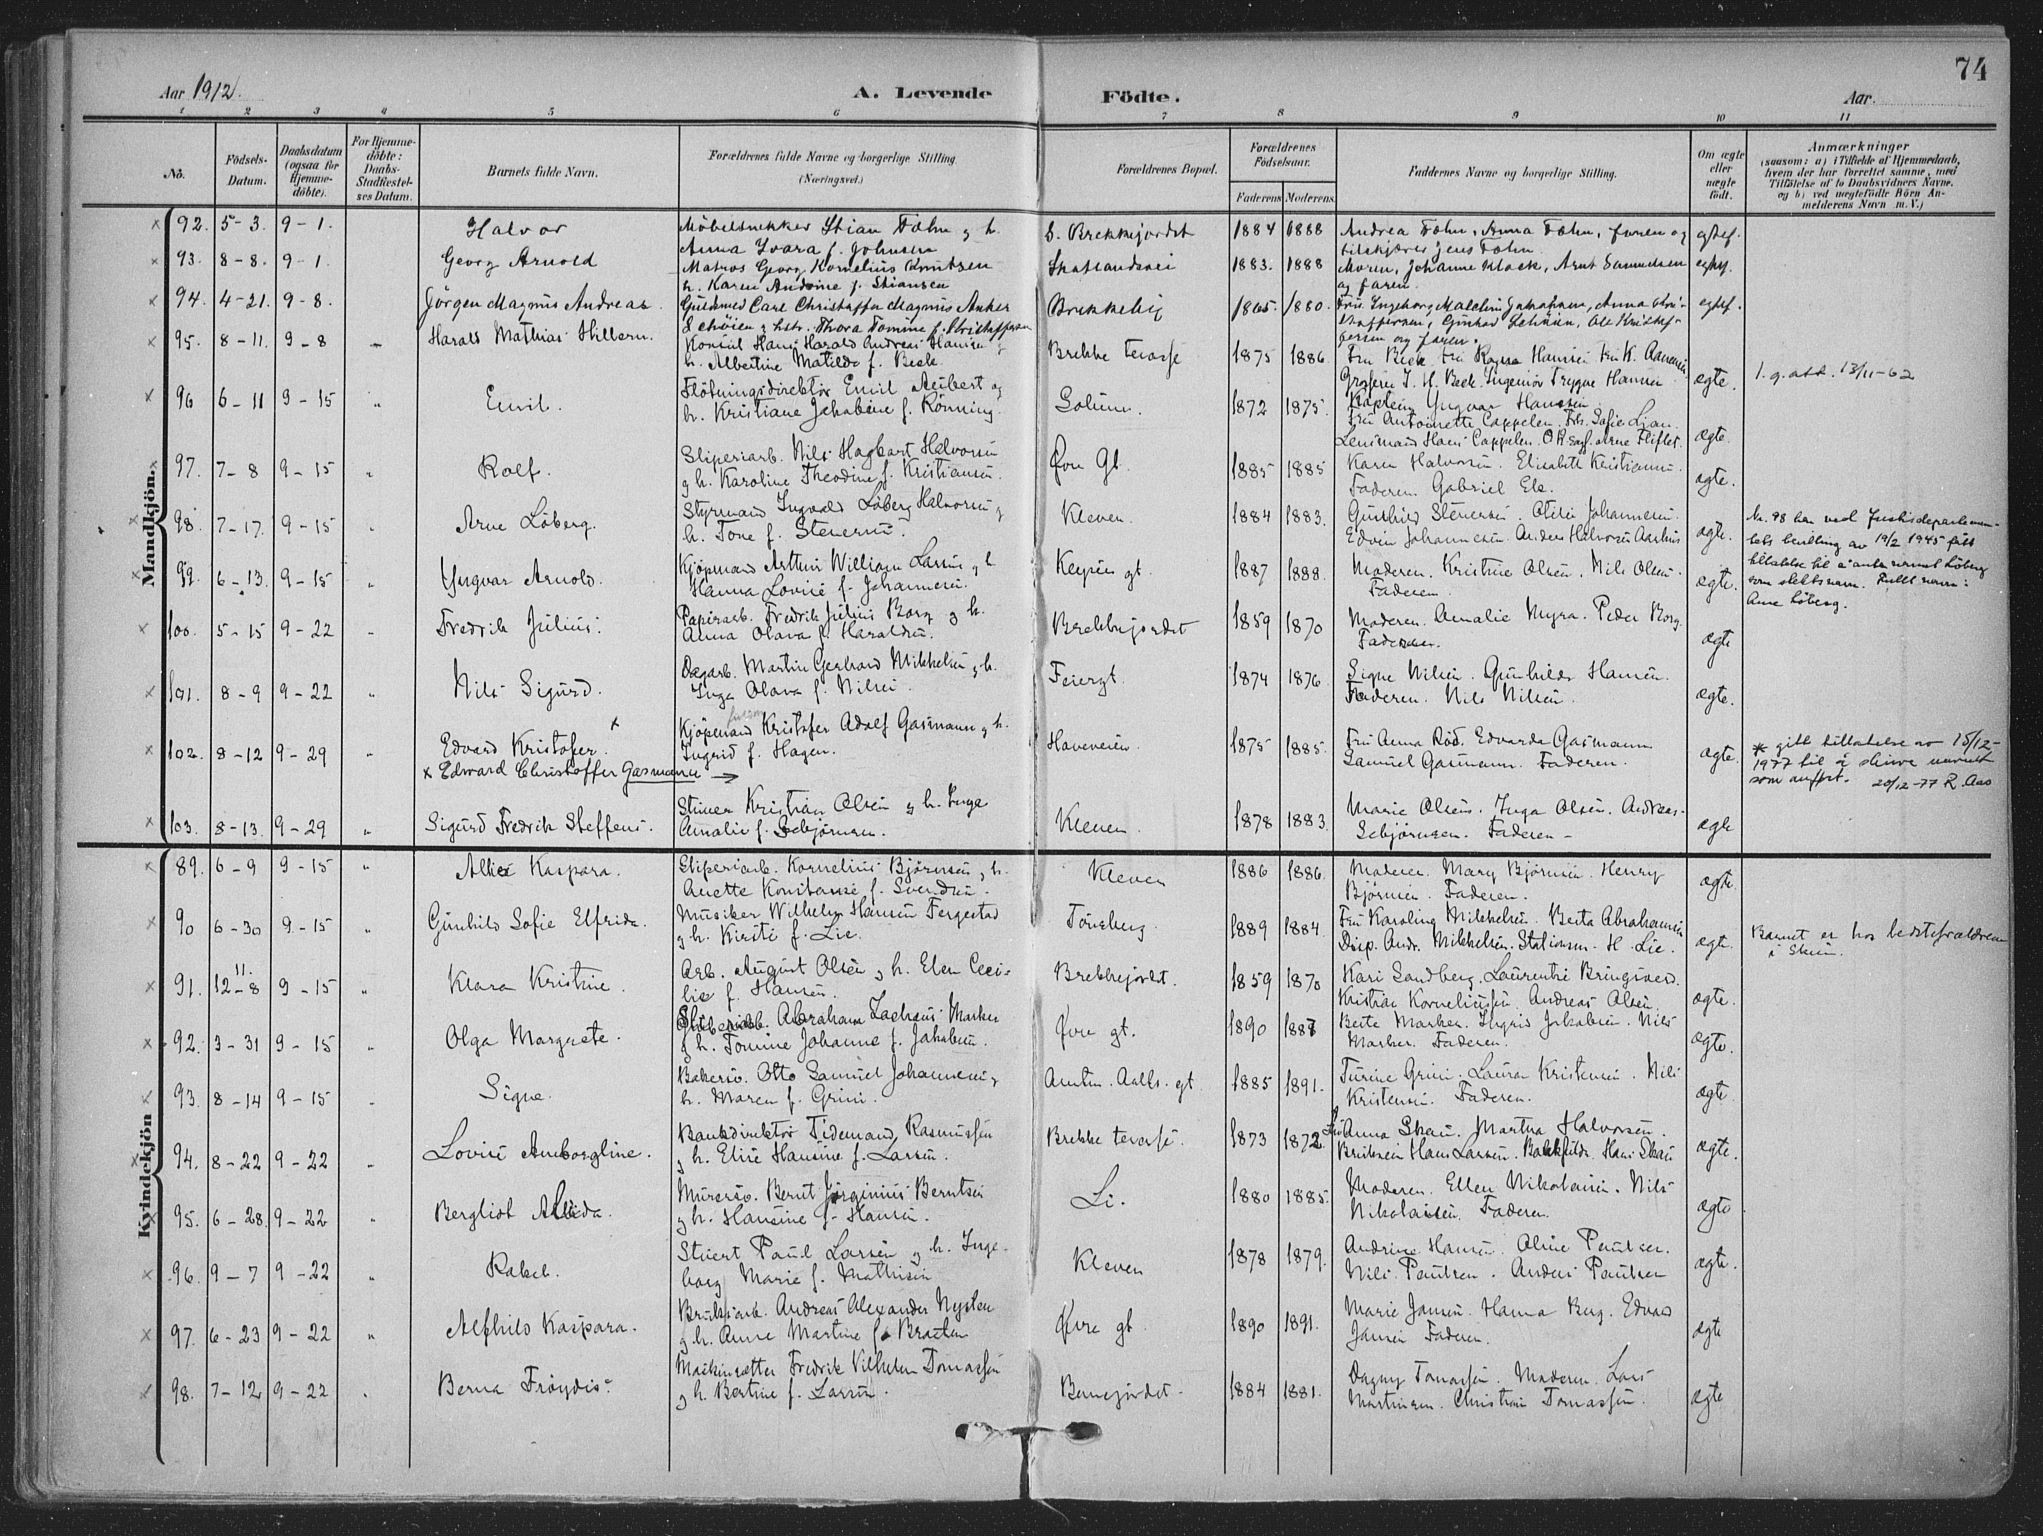 74
Aar 1912.
A. Levende Födte.
Aar.
1 2 3 4 5 6 7 8 9 10 11
No.
Födsels-Datum.
Daabsdatum (ogsaa for Hjemme-döbte).
For Hjemme-döbte: Daabs-Stadfæstel-ses Datum.
Barnets fulde Navn.
Forældrenes fulde Navne og borgerlige Stilling. (Næringsvei.)
Forældrenes Bopæl.
Forældrenes Födselsaar.
Faderens Moderens
Faddernes Navne og borgerlige Stilling.
Om ægte eller uægte födt.
Anmærkninger
(saasom: a) i Tilfælde af Hjemmedaab, hvem der har forrettet samme, med Tilföielse af to Daabsvidners Navne, og b) ved uægtefödte Börn An-melderens Navn m. V.)
Mandkjön.
92. 5-3. 9-1. Halvor Möbelsnekker Stian Fohn g h. Brekkejordet 1884 1888 Andrea Fohn, Anna Fohn, faren og
Anna Svara f. Johnsen Jens Fohn
93. 8-8. 9-1. Georg Arnold Matros Georg Kornelius Knutsen 1883. 1888 Moren, Johanne Klock, Arnt Samuelsen
h. Karen Andoine f. Stiansen og faren.
94. 4-21. 9-8. Jörgen Magnus Andreas Carl Christoffer Magnus Anker Brekkebig 1865. 1880. Frk. Ingeborg Malchin Jakobsen, Anna Kri-
Schöien g hstr. Thora Tomine f. Kristoffersen stoffersen, Gunhard Schöien, Ole Kristof-
fersen og faren.
95. 8-11. 9-8 Harald Mathias Hillern. Konsul Hans Harald Andreas Hansen g Brekke terasse 1875 1886. Fru Beck Fru Ragna Hansen Fru K. Aanesen ægte. 1. g. att. 13/11-62
h. Albertine Matilde f. Beck. Grosserer J. H. Beck. Ingeniör Trygve Hansen
Kaptein Yngvar Hansen
96 6-11 9-15 " Emil. Flötningsdirektör Emil Aubert og Solum. 1872 1875. Fru Antoinette Cappelen. Frk. Sofie Lian.
h. Kristiane Jakobine f. Rönning. Lensmand Hans Cappelen. Arne Fliflet. ægte.
97. 7-8 9-15 " Rolf. Sliperiarb. Nils Hagbart Halvorsen Övre Gt. 1885 1885 Karen Halvorsen. Elisabeth Kristiansen. ægte.
g h. Karoline Theodine f. Kristiansen. Faderen. Gabriel Ek.
98. 7-17. 9-15 " Arne Löberg. Styrmand Ingvald Löberg Halvorsen g Kleven. 1884 1883. Gunhild Stenersen. Otilie Johannesen. ægte.
h. Tone f. Stenersen. Edvin Johannesen. Anders Halvorsen Aarhus
Nr. 98 har ved Justisdepartemen-
tets bevilling av 19/2 1945 fått
tillatelse til å anta navnet Löberg
som slektsnavn. Fullt navn:
Arne Löberg.
99. 6-13. 9-15 " Yngvar Arnold. Kjöpmand Arthur William Larsen g h Keysers gt. 1887 1888. Moderen. Kristine Olsen. Nils Olsen. ægte.
Hanna Lovise f. Johannesen. Faderen.
100. 5-15 9-22 " Fredrik Julius. Papirarb. Fredrik Julius Borg g h. Brekkejordet 1859 1870 Moderen. Amalie Myra. Peder Borg. ægte
Anna Olava f. Haraldsen. Faderen.
101. 8-9 9-22 " Nils Sigurd. Dagarb. Martin Gerhard Mikkelsen g h. Feiergt. 1874 1876. Signe Nilsen. Gunhild Hansen. ægte.
Inga Olava f. Nilsen. Faderen. Nils Nilsen.
102. 8-12 9-29 " Edvard Kristofer. x Kjöpmand Kristofer Adolf Gasmann g h. Haveveien. 1875 1885. Fru Anna Röd. Edvarda Gasmann ægte.
x Edward Christoffer Gasmann → Ingrid f. Hagen. Samuel Gasmann. Faderen.
* gitt tillatelse av 15/12-
1977 til å skrive navnet
som anfört. 20/12-77 R. Aas
103. 8-13. 9-29 " Sigurd Fredrik Steffens. Stuer Kristian Olsen g h. Inga Kleven. 1878 1883. Marie Olsen. Inga Olsen. Andreas ægte
Amalie f. Sebjörnsen. Sebjörnsen. Faderen -
Kvindekjön
89. 6-9 9-15 " Allice Kaspara. Sliperiarb. Kornelius Björnsen g h. Kleven 1886 1886. Moderen. Mary Björnsen. Henry ægte.
Anette Konstanse f. Svendsen. Björnsen. Faderen.
90 6-30 9-15 " Gunhild Sofie Elfrida. Musiker Wilhelm Hansen Fergestad Tönsberg. 1889 1884. Fru Karoline Mikkelsen. Berta Abrahamsen ægte.
g h. Kirsti f. Lie. Disp. Andr. Mikkelsen. Stationsm. H. Lie.
Barnet er hos bedsteforældrene
i Skien.
91. 11. 12-8 9-15 " Klara Kristine. Arb. August Olsen g h. Elen Ceci- Brekkejordet. 1859 1870 Kari Sandberg. Laurentse Bringsverd. ægte.
lie f. Hansen. Kristian Korneliussen. Andreas Olsen.
92. 3-31 9-15 " Olga Margrete. Abraham Zacharias Marker Övre gt. 1890 1887 Berte Marker. Ingrid Jakobsen. Nils ægte.
g h. Tomine Johanne f. Jakobsen. Marker. Faderen.
93. 8-14 9-15 " Signe. Bakersv. Otto Samuel Johannesen g Amtm. Aalls. gt. 1885 1891. Turine Grini. Laura Kristensen. Nils ægte.
h. Maren f. Grini. Kristensen. Faderen.
94. 8-22 9-22 " Lovise Amborgline. Bankdirektör Tidemand Rasmussen Brekke terasse. 1873 1872 Fru Anna Skau. Martha Halvorsen. ægte.
g h. Elise Hansine f. Larsen. Hans Larsen. Hans Skau
95. 6-28. 9-22 " Bergliot Alvida. Murersv. Bernt Jörginius Berntsen Li. 1880 1885. Moderen. Ellen Nikolaisen. Nils ægte
g h. Hansine f. Hansen. Nikolaisen. Faderen.
96. 9-7 9-22 " Rakel. Stuert Paul Larsen g h. Inge- Kleven 1878 1879. Andrine Hansen. Aline Paulsen. ægte.
borg Marie f. Mathisen Nils Paulsen. Anders Paulsen
97. 6-23 9-22 " Alfhild Kaspara. Andreas Alexander Nysten Övre gt. 1890 1891. Marie Jansen. Hanna Berg. Edvard ægte
g h. Anne Martine f. Braaten Jansen Faderen.
98. 7-12 9-22 " Berna Fröydis. Maskinsætter Fredrik Vilhelm Tomassen 1884 1881. Dagny Tomassen. Moderen. Lars ægte
g h. Bertine f. Larsen. Martinsen. Christian Tomassen.